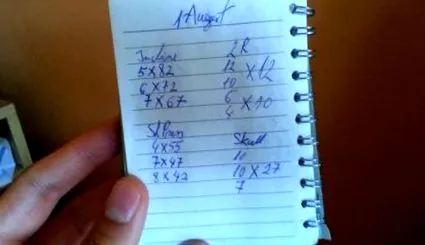 1 August
Incline
5 x 82
6 x 72
7 x 67
2R
12
10 x 12
6
4 x 10
4 x 55
7 x 47
8 x 42
Skull
10
10 x 27
7